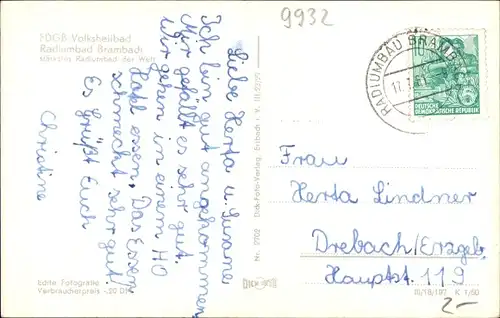 FDGB-Volksheilbad
Radiumbad Brambach
stärkstes Radiumbad der Welt
9932
RADIUMBAD BRAMBACH
DEUTSCHE
DEMOKRATISCHE REPUBLIK
Liebe Herta u. Susanne
Ich bin gut angekommen
Mir gefällt es sehr gut.
Wir gehen in einem HO
Hotel essen. Das Essen
schmeckt sehr gut.
Es grüßt Euch
Christine
Nr. 2702 Dick-Foto-Verlag, Erlbach i. V. III
Frau
Herta Lindner
Drebach/Erzgeb.
Hauptst. 119
Echte Fotografie
Verbraucherpreis -,20 DM
DICK
III/18/197 K 1/60
2-